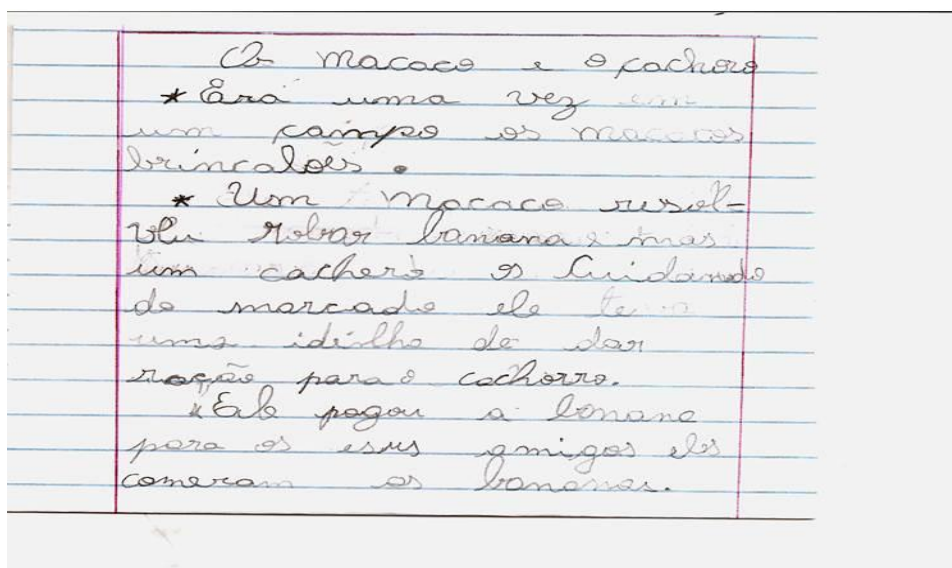 Os macaco e o cachoro
* Era uma vez em
um campo os macacos
brincalões.
* Um macaco resol=
veu robar banana e mas
um cachero os Cuidando
do marcado ele teve
uma ideilha de dar
ração para o cachorro.
* Ele pagou a banana
para os esus amigos eles
comeram as bananas.